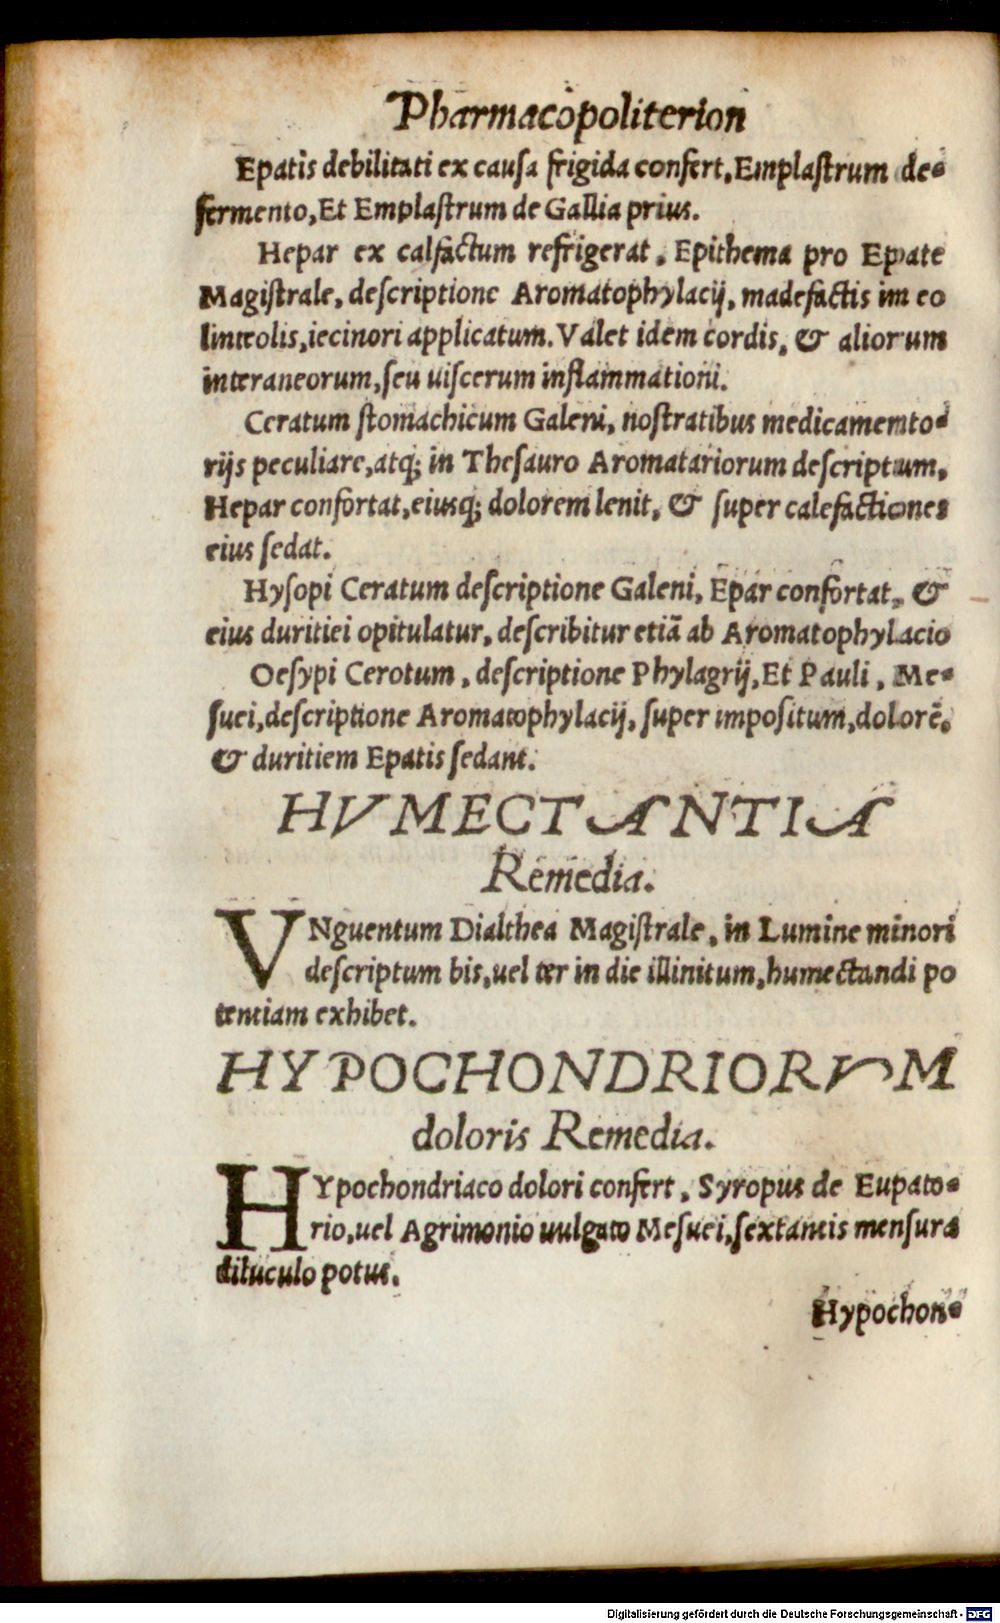 Pharmacopoliterion
Epatis debilitati ex causa frigida confert, Emplastrum de-
fermento, Et Emplastrum de Gallia prius.
Hepar ex calfactum refrigerat, Epithema pro Epate
Magistrale, descriptione Aromatophylacij, madefactis im eo
linteolis, iecinori applicatum. Valet idem cordis, & aliorum
interaneorum, seu uiscerum inflammationi.
Ceratum stomachicum Galeni, nostratibus medicamento-
rijs peculiare, atq; in Thesauro Aromatariorum descriptum,
Hepar confortat, eiusq; dolorem lenit, & super calefactiones
eius sedat.
Hysopi Ceratum descriptione Galeni, Epar confortat, &
eius duritiei opitulatur, describitur etiã ab Aromatophylacio
Oesypi Cerotum, descriptione Phylagrij, Et Pauli, Me-
suei, descriptione Aromatophylacij, super impositum, dolorẽ,
& duritiem Epatis sedant.
HVMECTANTIA
Remedia.
VNguentum Dialthea Magistrale, in Lumine minori
descriptum bis, uel ter in die illinitum, humectandi po
tentiam exhibet.
HYPOCHONDRIORVM
doloris Remedia.
HYpochondriaco dolori confert, Syropus de Eupato-
rio, uel Agrimonio uulgato Mesuei, sextantis mensura
diluculo potus.
Hypochon-
Digitalisierung gefördert durch die Deutsche Forschungsgemeinschaft - DFG